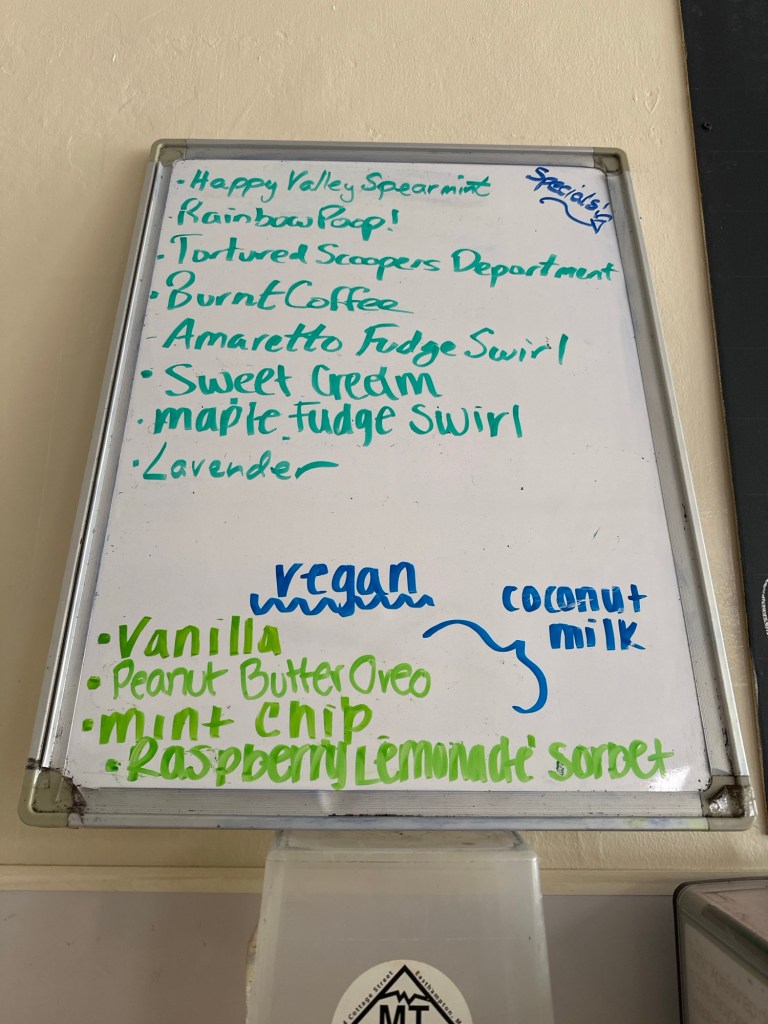 Specials!
· Happy Valley Spearmint
· Rainbow Poop!
· Tortured Scoopers Department
· Burnt Coffee
- Amaretto Fudge Swirl
· Sweet Cream
· maple Fudge Swirl
· Lavender
vegan
coconut
milk
· Vanilla
· Peanut Butter Oreo
· mint chip
· Raspberry Lemonade sorbet
Cottage Street
Easthampton,
MT